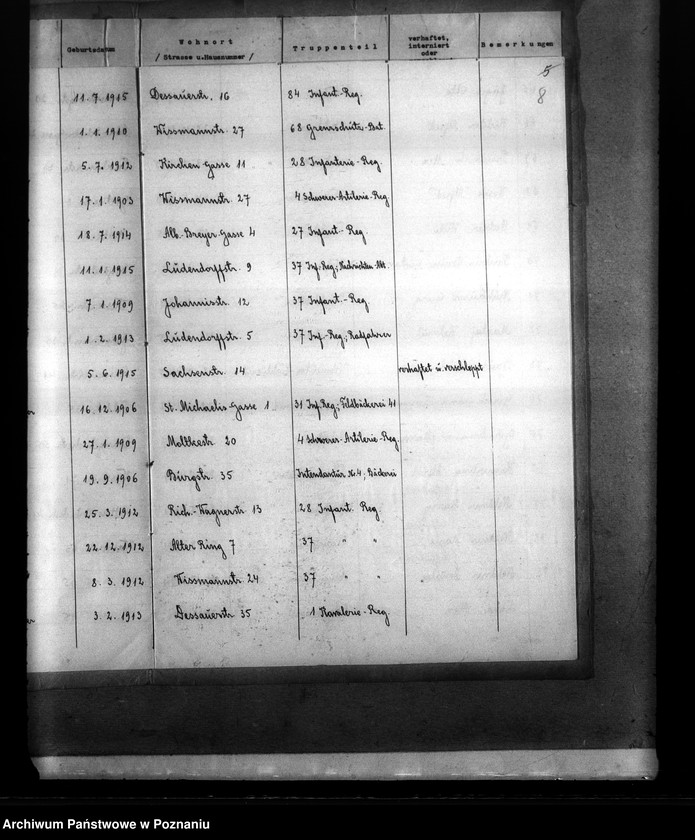 Geburtsdatum Wohnort / Strasse u.Hausnummer / Truppenteil verhaftet, interniert oder Bemerkungen
5
8
11.7.1915 Dessauerstr. 16 84 Infant-Reg.
1.1.1910 Wissmannstr. 27 68 Grenzschutz-Bat.
5.7.1912 Kirchen Gasse 11 28 Infanterie-Reg.
17.1.1903 Wissmannstr. 27 4 Schwerer-Artilerie-Reg
18.7.1914 Alb.-Breyer Gasse 4 27 Infant-Reg.
11.1.1915 Ludendorffstr. 9 37 Inf-Reg; Nachrichten-Abt.
7.1.1909 Johannisstr. 12 37 Infant.-Reg.
1.2.1913 Ludendorffstr. 5 37 Inf-Reg; Radfahrer
5.6.1915 Sachsenstr. 14 verhaftet u. verschleppt
16.12.1906 St. Michaelis Gasse 1 31 Inf.Reg; Feldbäckerei 41
27.1.1909 Moltkestr 20 4 Schwerer-Artilerie-Reg.
19.9.1906 Burgstr. 35 Intendantur N.4, Bäckerei
25.3.1912 Rich.-Wagnerstr 13 28 Infant. Reg
22.12.1912 Alter Ring 7 37 " "
8.3.1912 Wissmannstr. 24 37 " "
3.2.1913 Dessauerstr 35 1 Kavalerie-Reg.
Archiwum Państwowe w Poznaniu